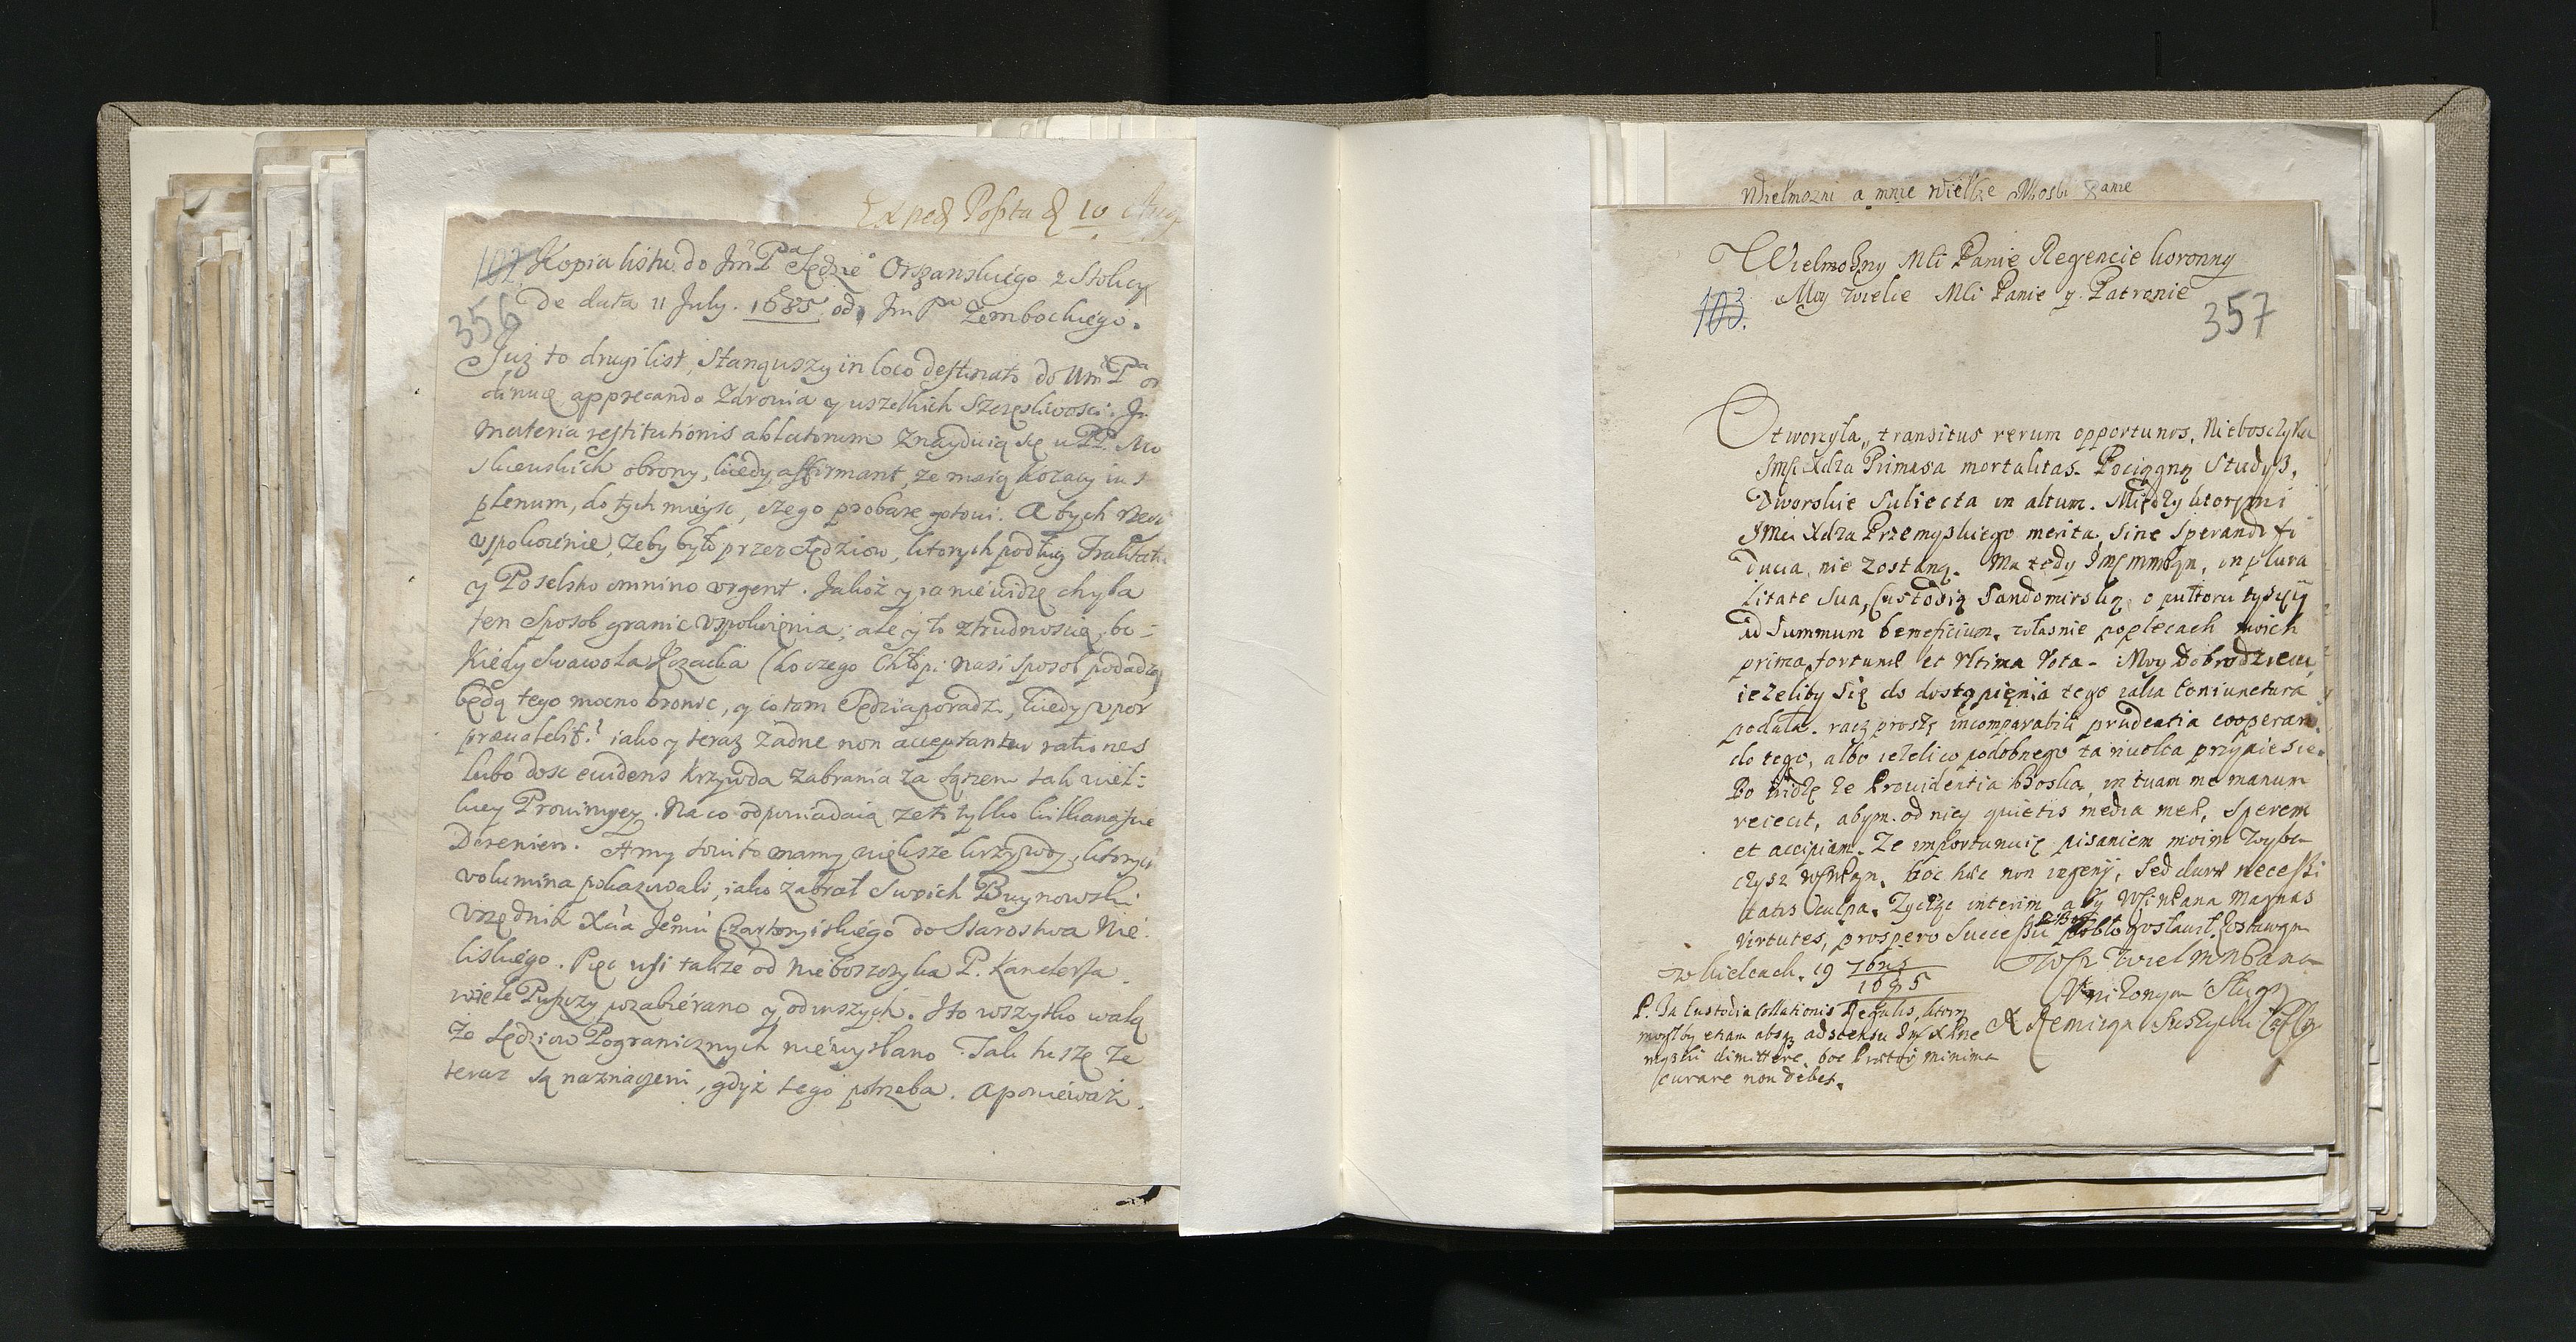 Exped Posta d 10 Aug
102.
Kopia listu do Jm Pa Sędzie° Orszanskiego z Stolicy
356
De data 11 July. 1685. od Jm Pa Zembockiego.
Już to drugi list, stanąwszy in loco destinato do Wm Pa or
dinuię apprecando Zdrowia y wszelkich Szczęsliwosci. In
materia restitutionis ablatorum znayduią się u PP. Mo
skiewskich obrony, kiedy affirmant, że maią Kozacy ius
plenum, do tych mieysc, czego probare gotowi. A tych rzeczy
uspokoienie, żeby było przez Sędziow, ktorych podług Traktatu
y Poselsko omnino urgent. Jakoż y ia nie widzę chyba
ten sposob granic uspokoienia; ale y to ztrudnoscią, bo-
Kiedy swawola Kozacka (do czego Chłopi nasi sposob podadzą
będą tego mocno bronic, y co tam Sędzia poradzi, kiedy upor
præualebit? iako y teraz żadne non acceptantur rationes
lubo dosc euidens krzywda zabrania za Sożem tak wiel-
kiey Prowincyey. Na co odpowiadaią że to tylko kilkanascie
Derewien. A my sowito mamy większe krzywdy, ktorych
volumina pokazywali, iako zabrał swoich Buynowski
Urzędnik Xcia Jemci Czartoryiskiego do Starostwa Nie-
liskiego. Pięc wsi także od nieboszczyka P. Kandersa.
wiele Puszczy pozabierano y od inszych. I to wszytko walą
że Sędziow Pogranicznych nie wysłano. Tak tuszę że
teraz są naznaczeni, gdyż tego potrzeba. A ponieważ.
Wielmozni a mnie wielke Mosci Panie
Wielmożny Mci Panie Regencie koronny
103.
Moy wielce Mci Panie y Patronie
357
Otworzyła, transitus rerum opportunos, Nieboszczyka
Jmsc Xdza Primasa mortalitas. Pociągną Studys,
Dworskie Subiecta in altum. Między ktorymi
Jmci Xdza Przemyskiego merita, sine sperandi fi
ducia, nie zostaną. Ma tedy
litate sua, Custodią Sandomirską, o pułtoru tysięcy
ad summum beneficium. własnie po plecach moich
prima fortunæ et ultima Vota. Moy Dobrodzieiu,
ieżeliby się do dostąpienia tego iaka coniunctura
podała. racz proszę incomparabili prudentia cooperari
do tego, albo ieżeli co podobnego ta nuolca przyniesie.
Bo widzę że Prouidentia Boska, in tuam me manum
reiecit, abym. od niey quietis media meæ, sperem
et accipiam. Ze importunuię pisaniem moim wyba
czysz hoc hæc non ingenij, sed duræ necessi
tatis culpa. Zyczę interim aby Magnas
virtutes, prospero successu P. Bog błogosławił. Zostawam
w Kielcach. 19 7bris
1685
Uniżonym Sługą
P. Ta Custodia Collationis Regalis, ktorą
mogłby etiam absq adscensu
myski dimittere. hoc Prætor minima
curare non debet.